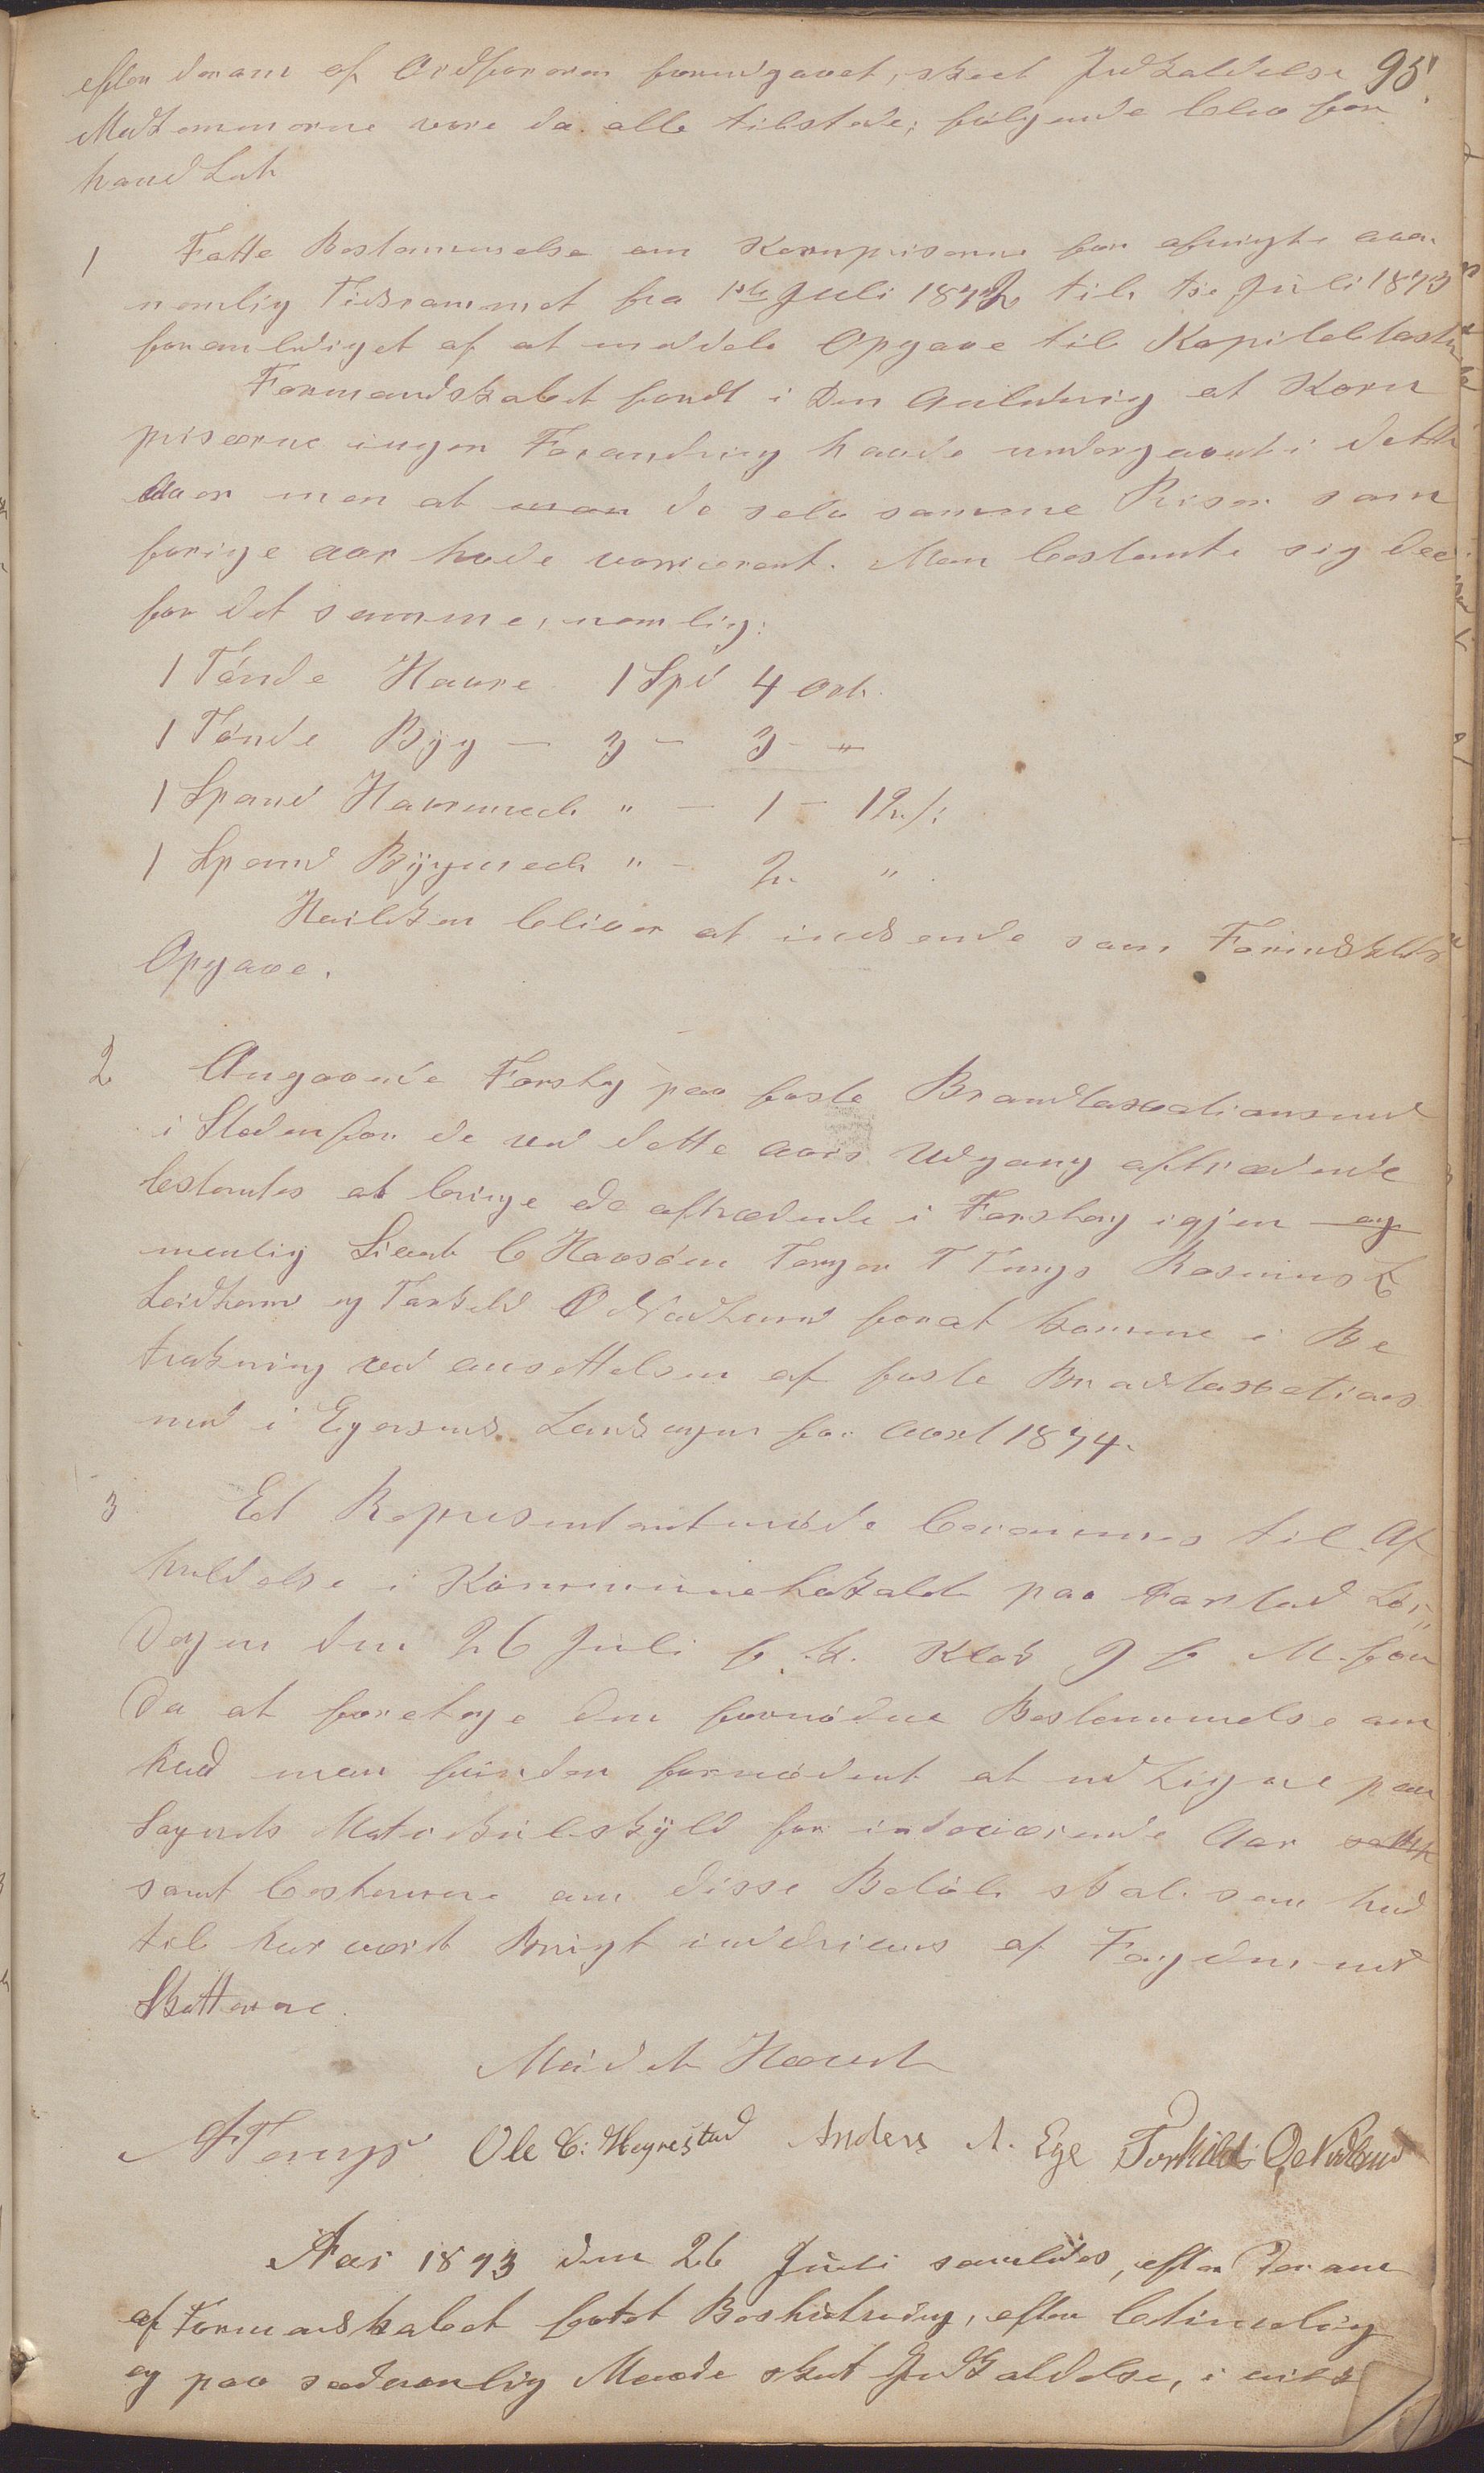 95
efter derom af Ordføreren forudgaaet, skeet Indkaldelse
Medlemmerne vare da alle tilstede; følgende blev for
handlet
1 Fatte Bestemmelse om Kornpriserne for afvigte aar
nemlig Tidsrummet fra 1ste Juli 1872 til 1ste Juli 1873
foranlediget af at meddele Opgave til Kapiteltaxten
Formandskabet fandt i den Anledning at Korn
priserne ingen Forandring havde undergaaet i dette
Aar men at man de selv samme Priser som
forige aar hade varieret. Man bestemte sig der
for det samme, nemlig:
1 Tønde Havre 1 Spd 4 Ort.
1 Tønde Byg — 3 — 3 - "
1 Spand Havremeel " — 1 — 12 s:
1 Spand Bygmeel " — 2 "
Hvilken bliver at indsende som Formdskbts
Opgave.
2 Angaaende Forslag paa faste Brandtaxationsmd
i Stedenfor de ved dette aars Udgang aftrædende
bestemtes at bringe de aftrædende i Forslag igjen og
nemlig Sivert C Havsøen Tørger T Tengs Rasmus L
Leidland og Torkild O Nedland forat komme i Be
trakning ved ansettelsen af faste Brandtaxations
md i Egersunds Landsogn for Aaret 1874.
3 Et Representantmøde berammes til Af
holdelse i Kommunelokalet paa Aarstad Lør„
dagen den 26 Juli f. k. Klok 9 f M. for
da at foretage den fornødne Bestemmelse om
hvad man finder fornødent at udligne paa
Sognets Matrikulskyld for indeværende Aar samt
samt bestemme om disse Beløb skal som hid
til har været Brugt inddrives af Fogden med
Skatterne.
Mødet Hævet
T Tengs Ole C: Hegrestad Anders A. Ege Torkild O Nedland
Aar 1873 den 26 Juli samledes, efter derom
af Formandskabet fattet Beslutning, efter betimelig
og paa sædvanlig Maade skeet Indkaldelse, i